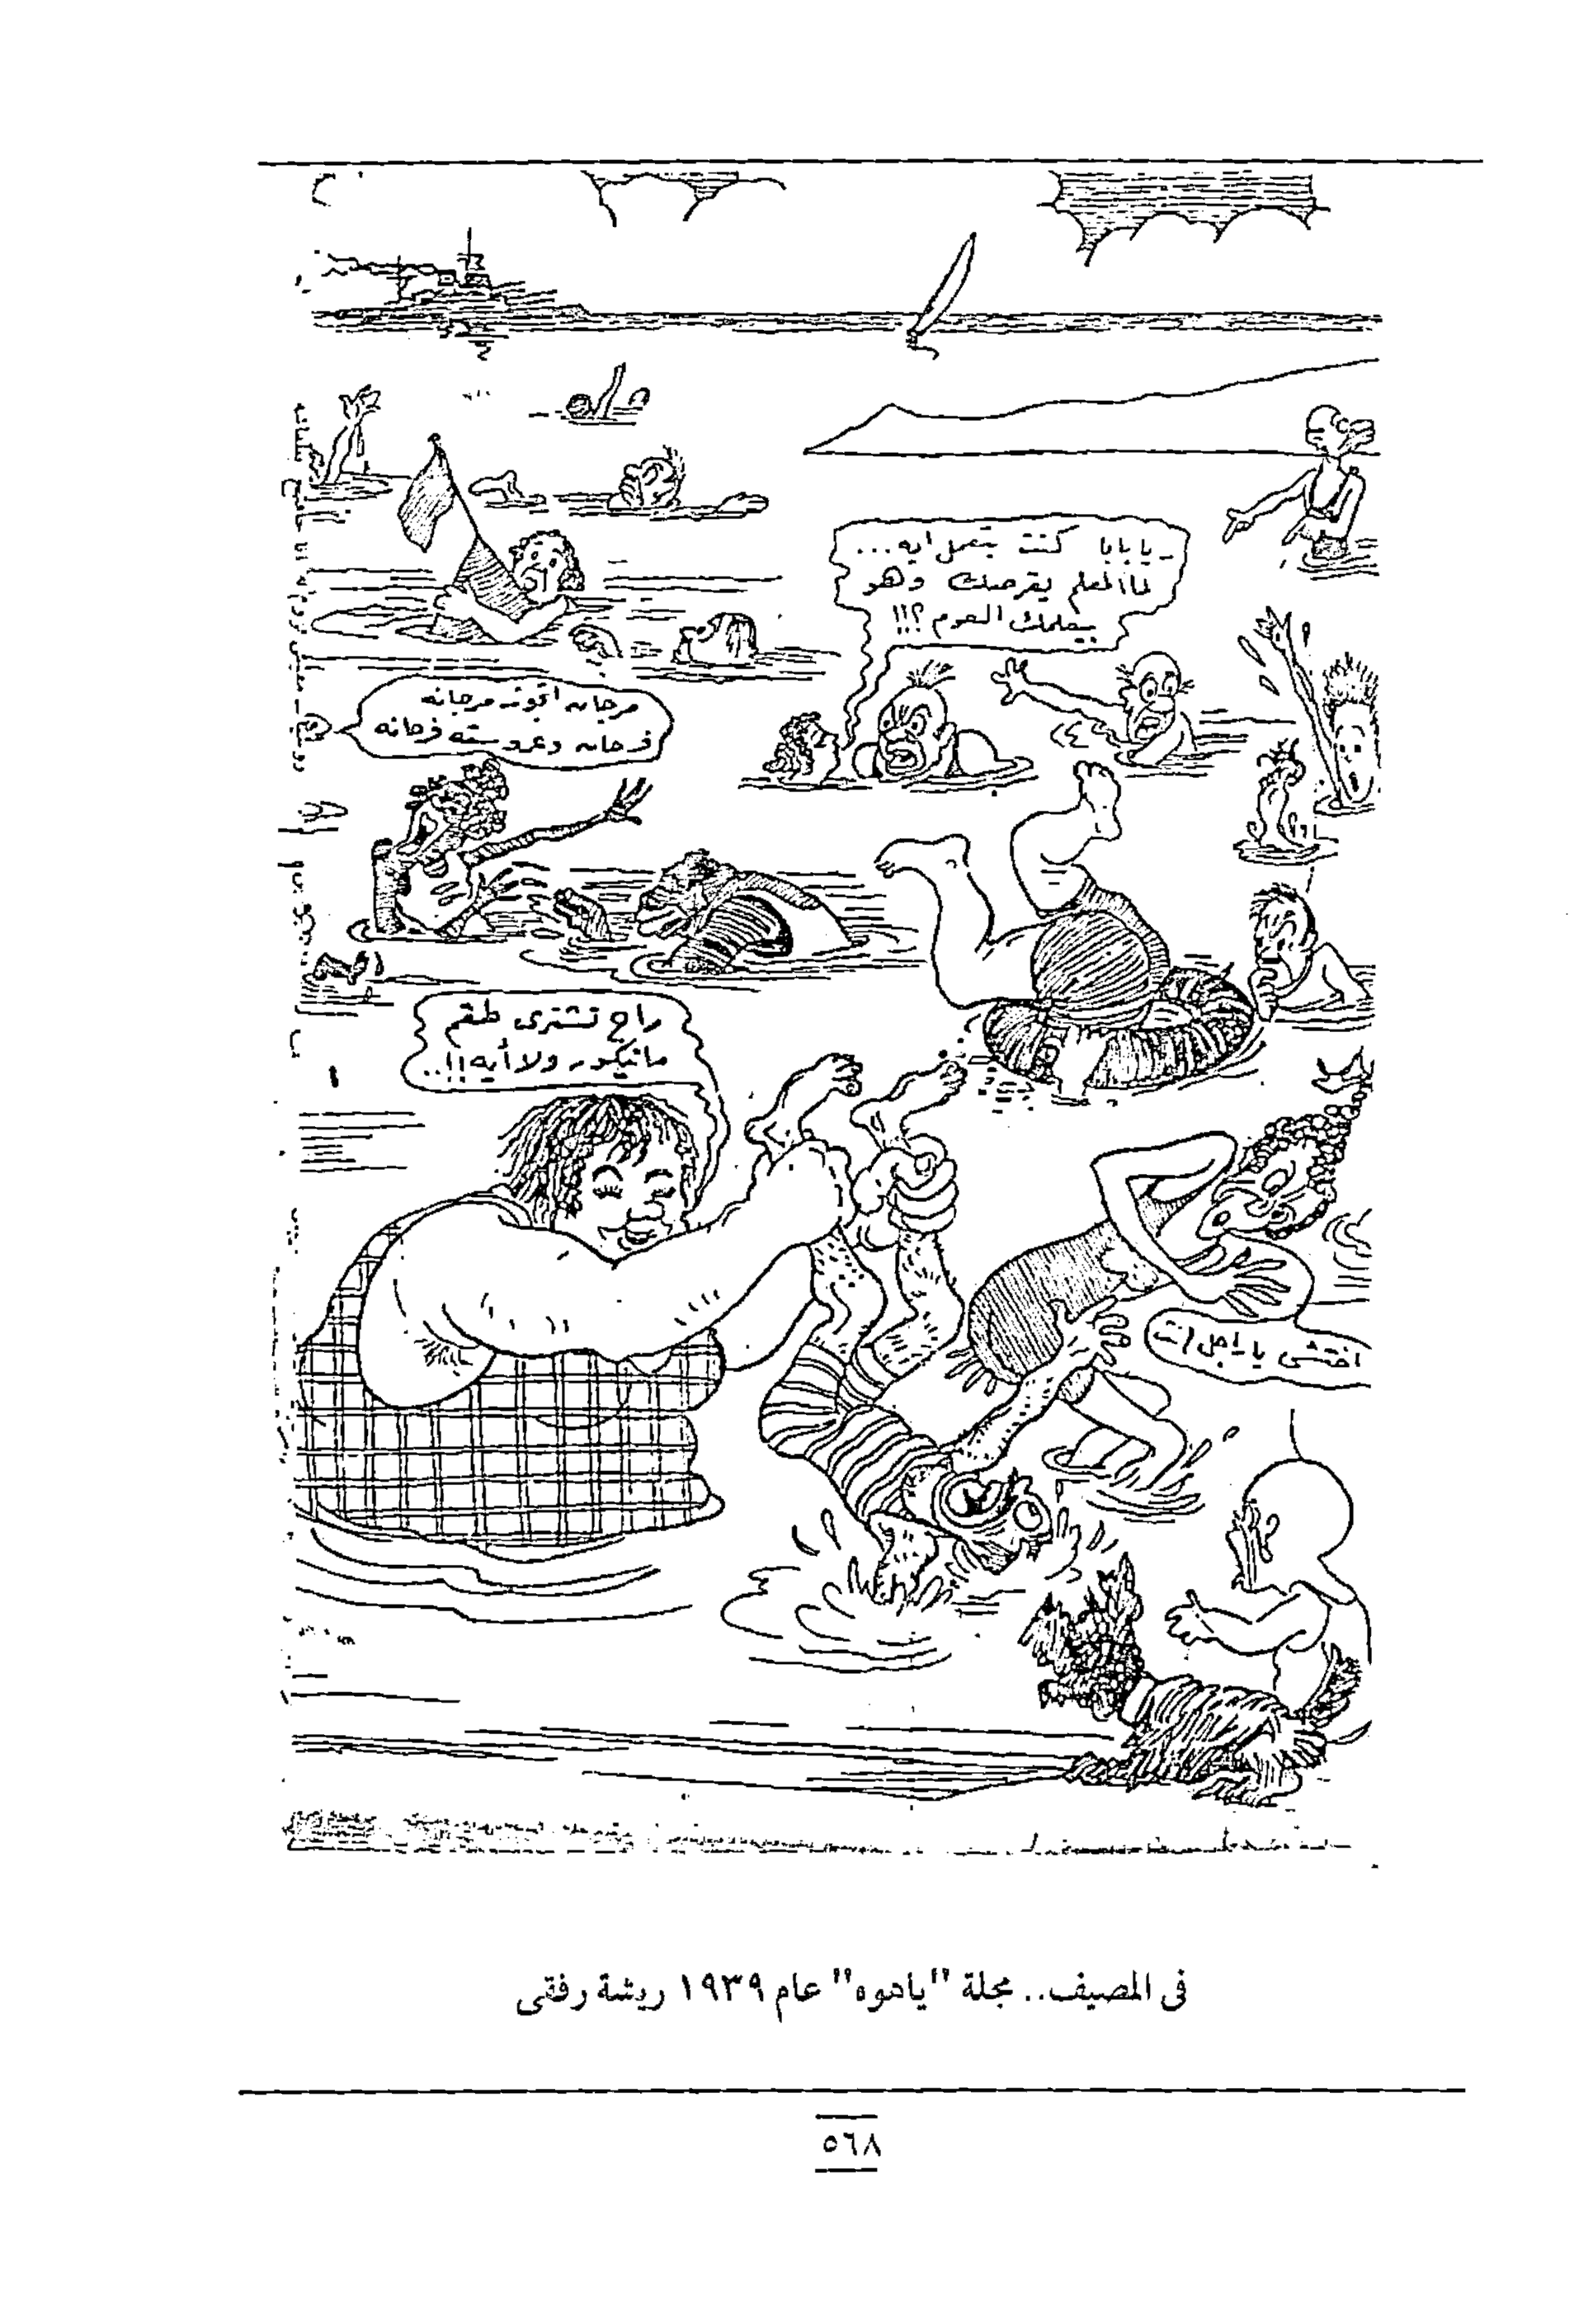 ـ يا بابا كنت بتعمل ايه ...
لما المعلم يقرصك وهو
بيعلمك العوم ؟!!
مرجان اتجوز مرجانه
فرحان وعروسته فرحانه
راح تشترى طقم
مانيكور ولا أيه !!..
اختشى يا راجل انت
فى المصيف.. مجلة "ياهوه" عام ١٩٣٩ ريشة رفقى
٥٦٨